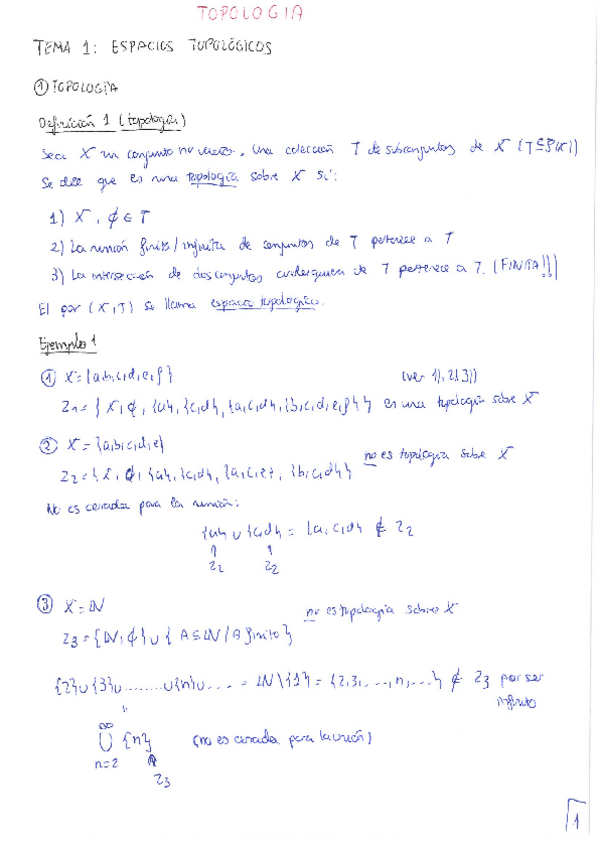 TOPOLOGIA
TEMA 1: ESPACIOS TOPOLÓGICOS
① TOPOLOGÍA
Definición 1 (topología)
Sea X un conjunto no vacío. Una colección T de subconjuntos de X (T⊆P(X))
Se dice que es una topología sobre X si:
1) X, ∅ ∈ T
2) La unión finita/infinita de conjuntos de T pertenece a T
3) La intersección de dos conjuntos cualesquiera de T pertenece a T. (FINITA!!)
El par (X,T) se llama espacio topológico.
Ejemplo 1
① X={a,b,c,d,e,f} (ver 1), 2), 3))
Z₁={X,∅,{a},{c,d},{a,c,d},{b,c,d,e,f}} es una topología sobre X
② X={a,b,c,d,e} no es topología sobre X
Z₂={X,∅,{a},{c,d},{a,c,e},{b,c,d}}
No es cerrada para la unión:
{a}∪{c,d}={a,c,d} ∉ Z₂
Z₂ Z₂
③ X=ℕ no es topología sobre X
Z₃={ℕ,∅}∪{A⊆ℕ/A finito}
{2}∪{3}∪.......∪{n}∪... = ℕ\{1}={2,3,...,n,...} ∉ Z₃ por ser
infinito
∞
∪ {n} (no es cerrada para la unión)
n=2
Z₃
1